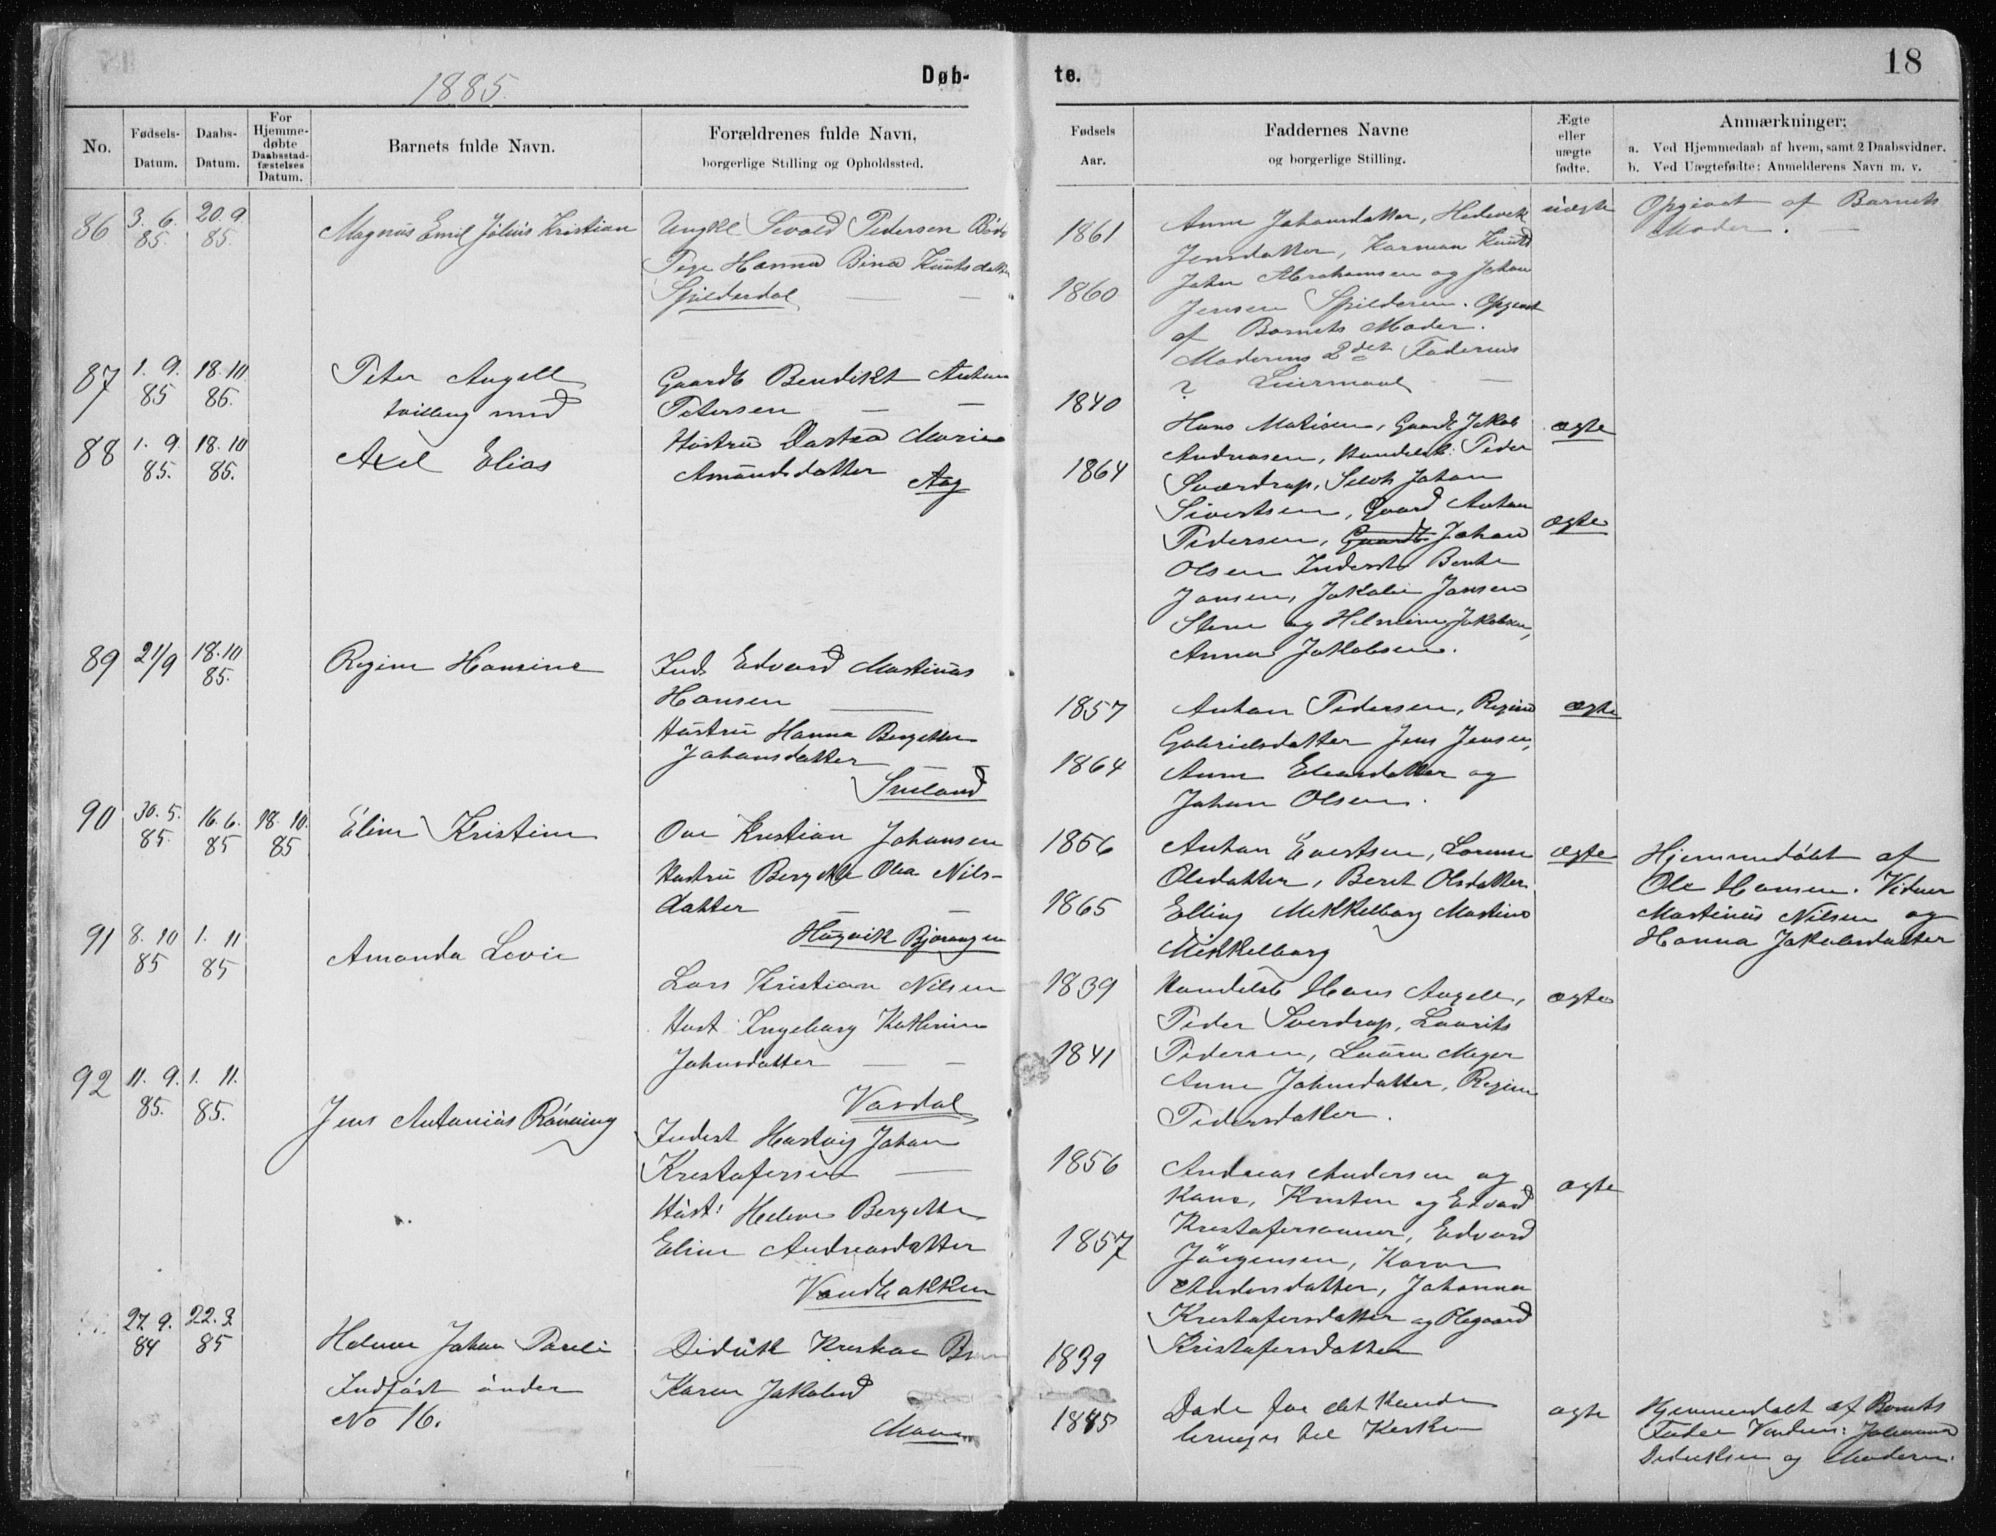 1885.
Døb-
No.
Fødsels-
Datum.
Daabs-
Datum.
For
Hjemme-
døbte
Daabsstad-
fæstelses
Datum.
Barnets fulde Navn.
Forældrenes fulde Navn,
borgerlige Stilling og Opholdssted.
86
3. 6.
85.
20. 9.
85.
Magnus Emil Julius Kristian
Ungkl Sevald Pedersen
Pige Hanna Bina Knutsdatter
Spilderdal
87
1. 9.
85
18. 10
86.
Peter Angell
tvilling med
Gaardb Bendikt Anton
Petersen
88
1. 9.
85.
18. 10
85.
Axel Elias
Hustru Dortea Marie
Amundsdatter
Aag
89
21/9
18. 10
85.
Regine Hansine
Ind. Edvard Martinus
Hansen
Hustru Hanna Bergette
Johansdatter
90
30. 5.
85.
16. 6.
85
18. 10.
85
Eline Kristine
Ove Kristian Johansen
Hustru Bergette Olea Nils-
datter
91
8. 10
85
1. 11
85
Amanda Lovie
Lars Kristian Nilsen
Hust. Ingeborg Kathrine
Johnsdatter
92
11. 9.
85.
1. 11.
85.
Jens Antonius Rønning
Vasdal
Inderst Hartvig Johan
Kristofersen
Hust: Helene Bergette
Eline Andreasdatter
Vandbakken
27. 9.
84
22. 3.
85
Johan
Indført under
No 16.
Didrik Kristian
Karen Jakobine
te.
18
Fødsels
Aar.
Faddernes Navne
og borgerlige Stilling.
Ægte
eller
uægte
fødte.
Anmærkninger;
a. Ved Hjemmedaab af hvem, samt 2 Daabsvidner.
b. Ved Uægtefødte: Anmelderens Navn m. v.
1861
Anne Johansdatter, Hedevik
uægte
Opgivet af Barnets
Moder.
Jensdatter, Knuts
1860
John Abrahamsen og Johan
Jensen Spilderen. Opgivet
af Barnets Moder.
Moderens 2det Faderens
? Leiermaal
1840
Hans Matisen, Gaardb Jakob
ægte
1864
Andreasen, Handelsb: Peder
Sverdrup, Selvh Johan
Sivertsen, Gaard Anton
ægte
Pedersen, Gaardb. Johan
Olsen Inderst Bente
Jansen, Jakobine Jansen
Stene og Helmine Jakobsen,
Anna Jakobsen.
1857
Anton Pedersen, Regine
ægte
Gabrielsdatter Jens Jensen,
1864
Anne Eliasdatter og
Johan Olsen.
1856
Anton Evertsen, Lorense
ægte
Hjemmedøbt af
Olsdatter, Beret Olsdatter
Ole Hansen. Vidner
1865
Elling Mikkelborg Martine
Martinus Nilsen og
Mikkelborg
Hanna Jakobsdatter
1839
Handelsb Hans Angell,
ægte
Peder Sverdrup, Laurits
1841
Pedersen, Laura Meyer
Anne Johnsdatter, Regine
Pedersdatter.
1856
Andreas Andersen og
ægte
Kone, Kristen og Edvard
1857
Kristofersønner, Edvard
Jörgensen, Karen
Andersdatter, Johanna
Kristofersdatter og Olegaard
1839
Kristofersdatter
1845
Døde før det kunde
ægte
Hjemmedøbt af Barnets
bringes til Kirken
Fader Vidner: Johanna
Didriksen og Moderen.